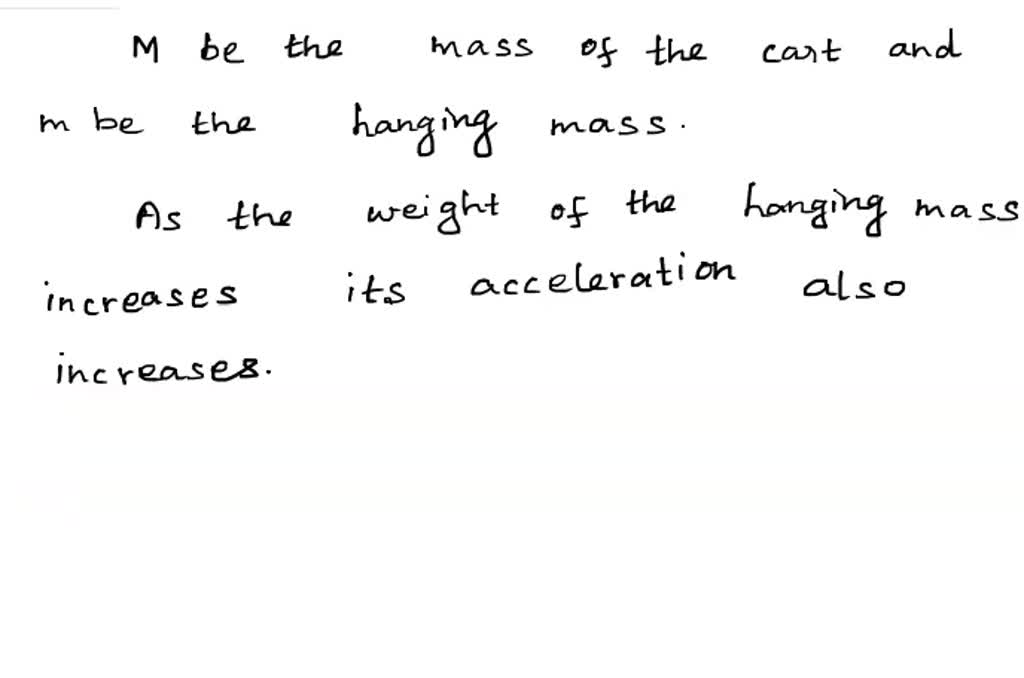 M be the mass of the cart and
m be the hanging mass.
As the weight of the hanging mass
increases its acceleration also
increases.